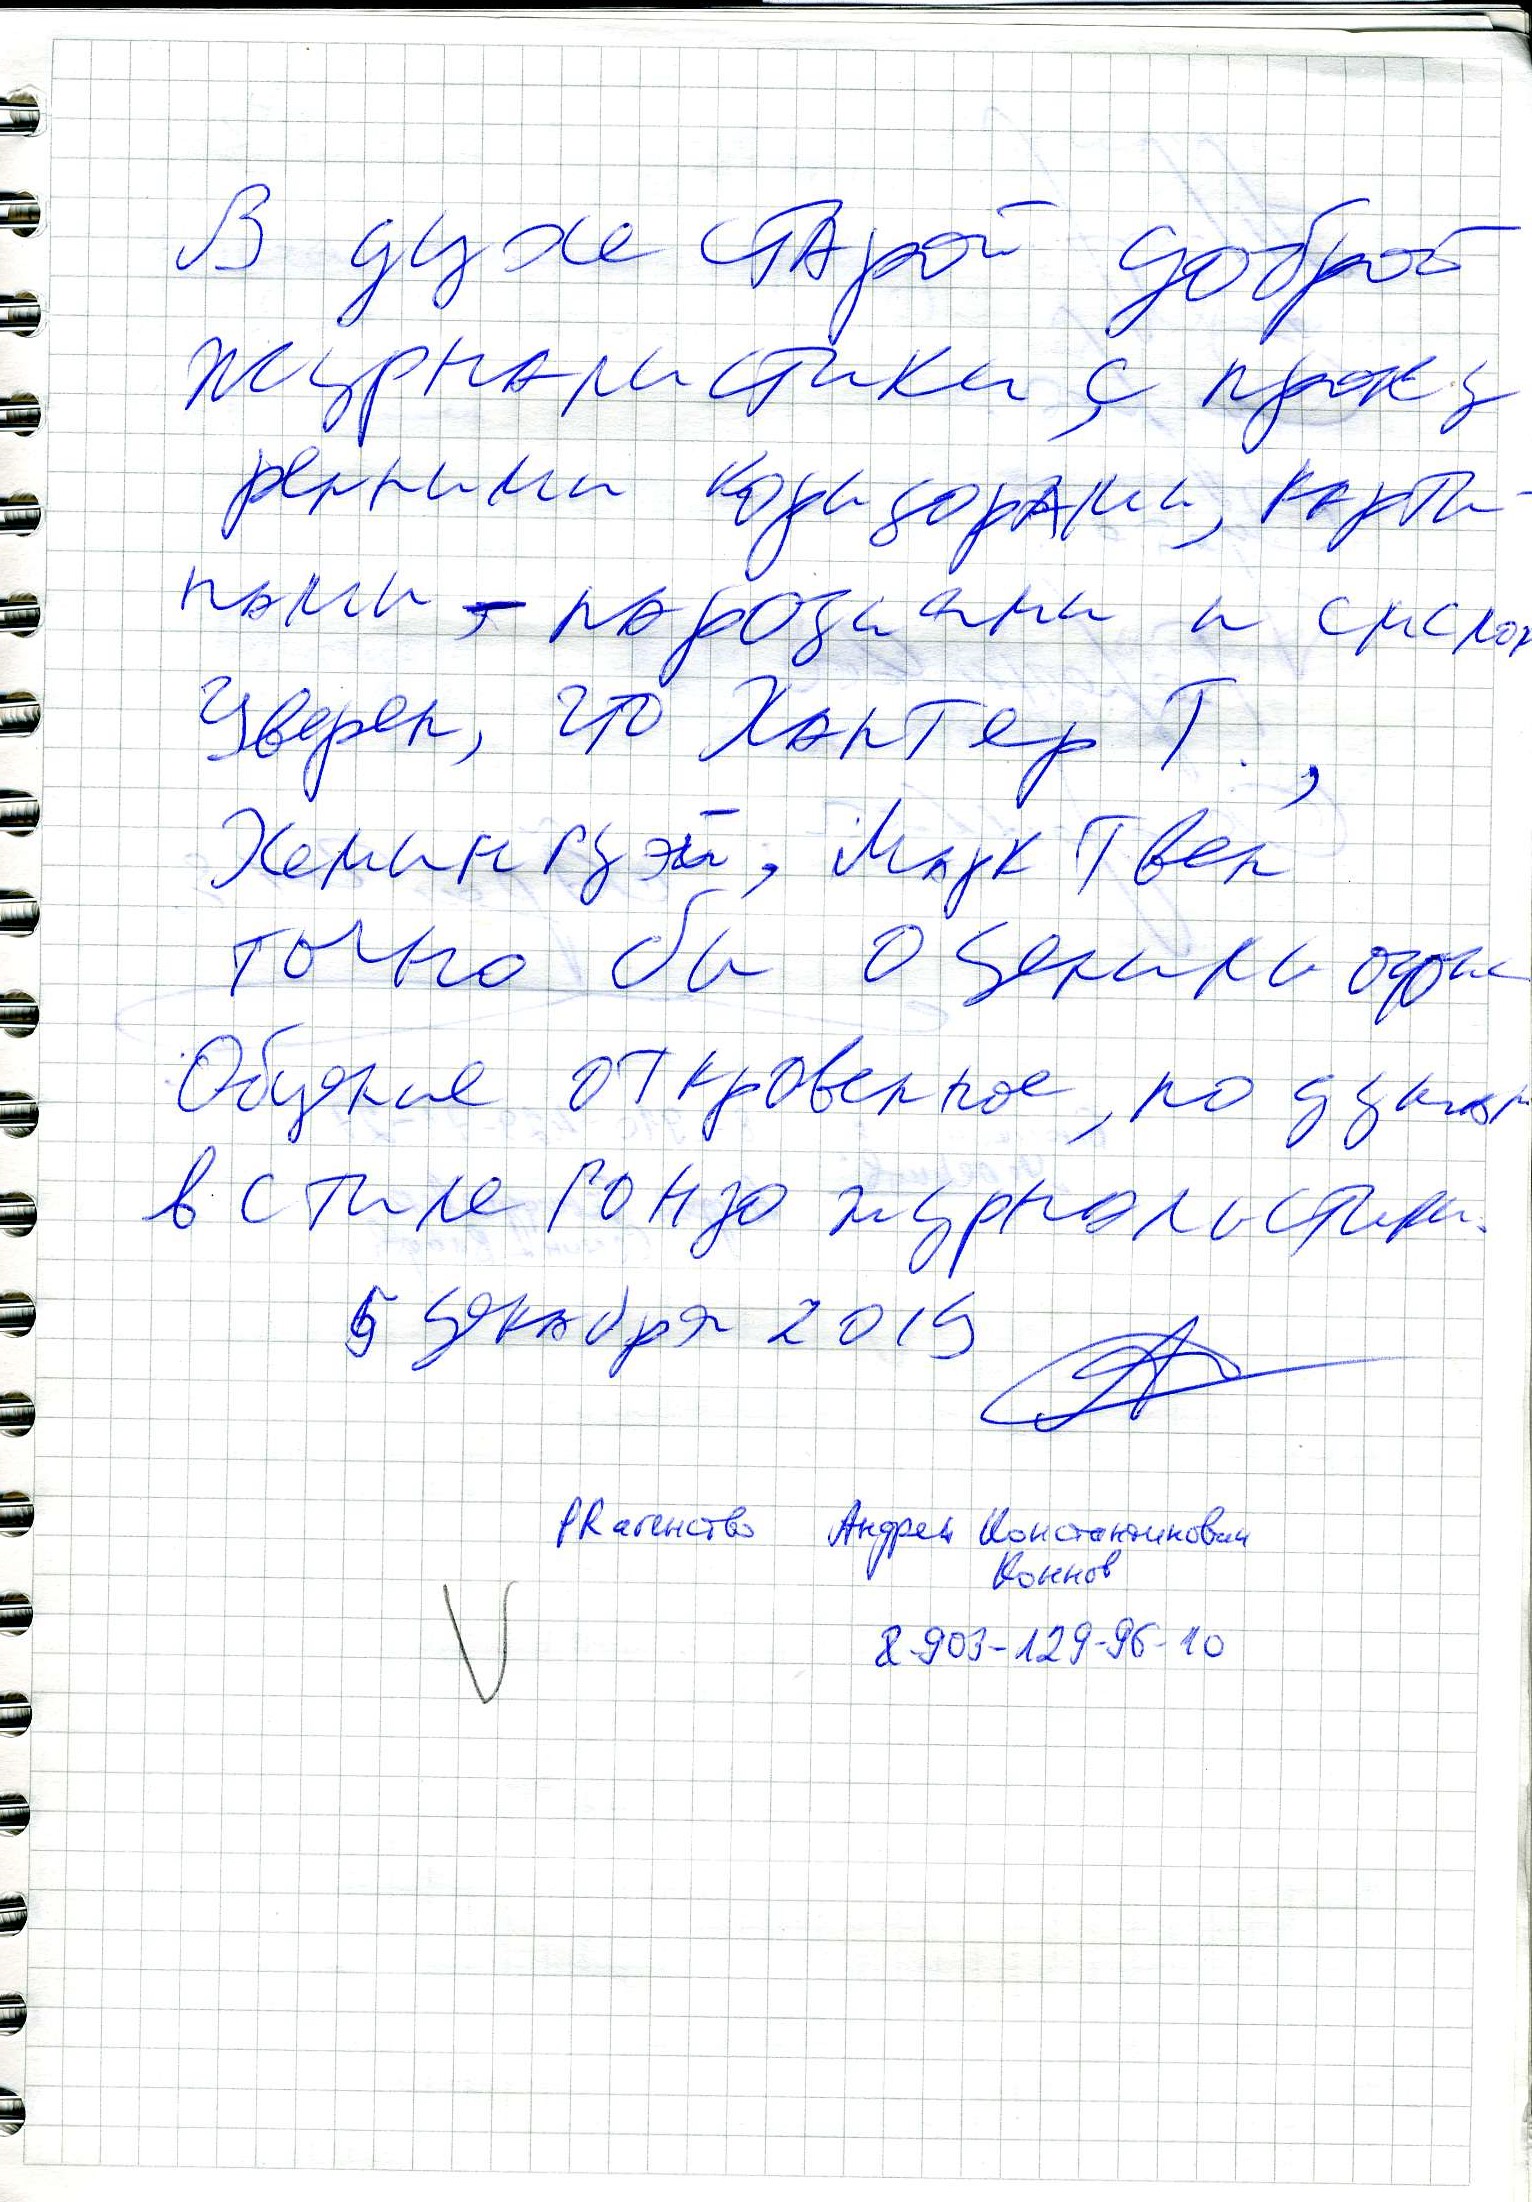 В духе старой доброй
журналистики, с проку
ренными коридорами, карти-
нами - пародиями и смыслом
Уверен, что Хантер Т.,
Хемингуэй, Марк Твен
точно бы оценили
Общение откровенное, по душам
в стиле Гонзо журналистики.
5 декабря 2019
PR агенство Андрей Константинович
Коннов
8-903-129-96-10